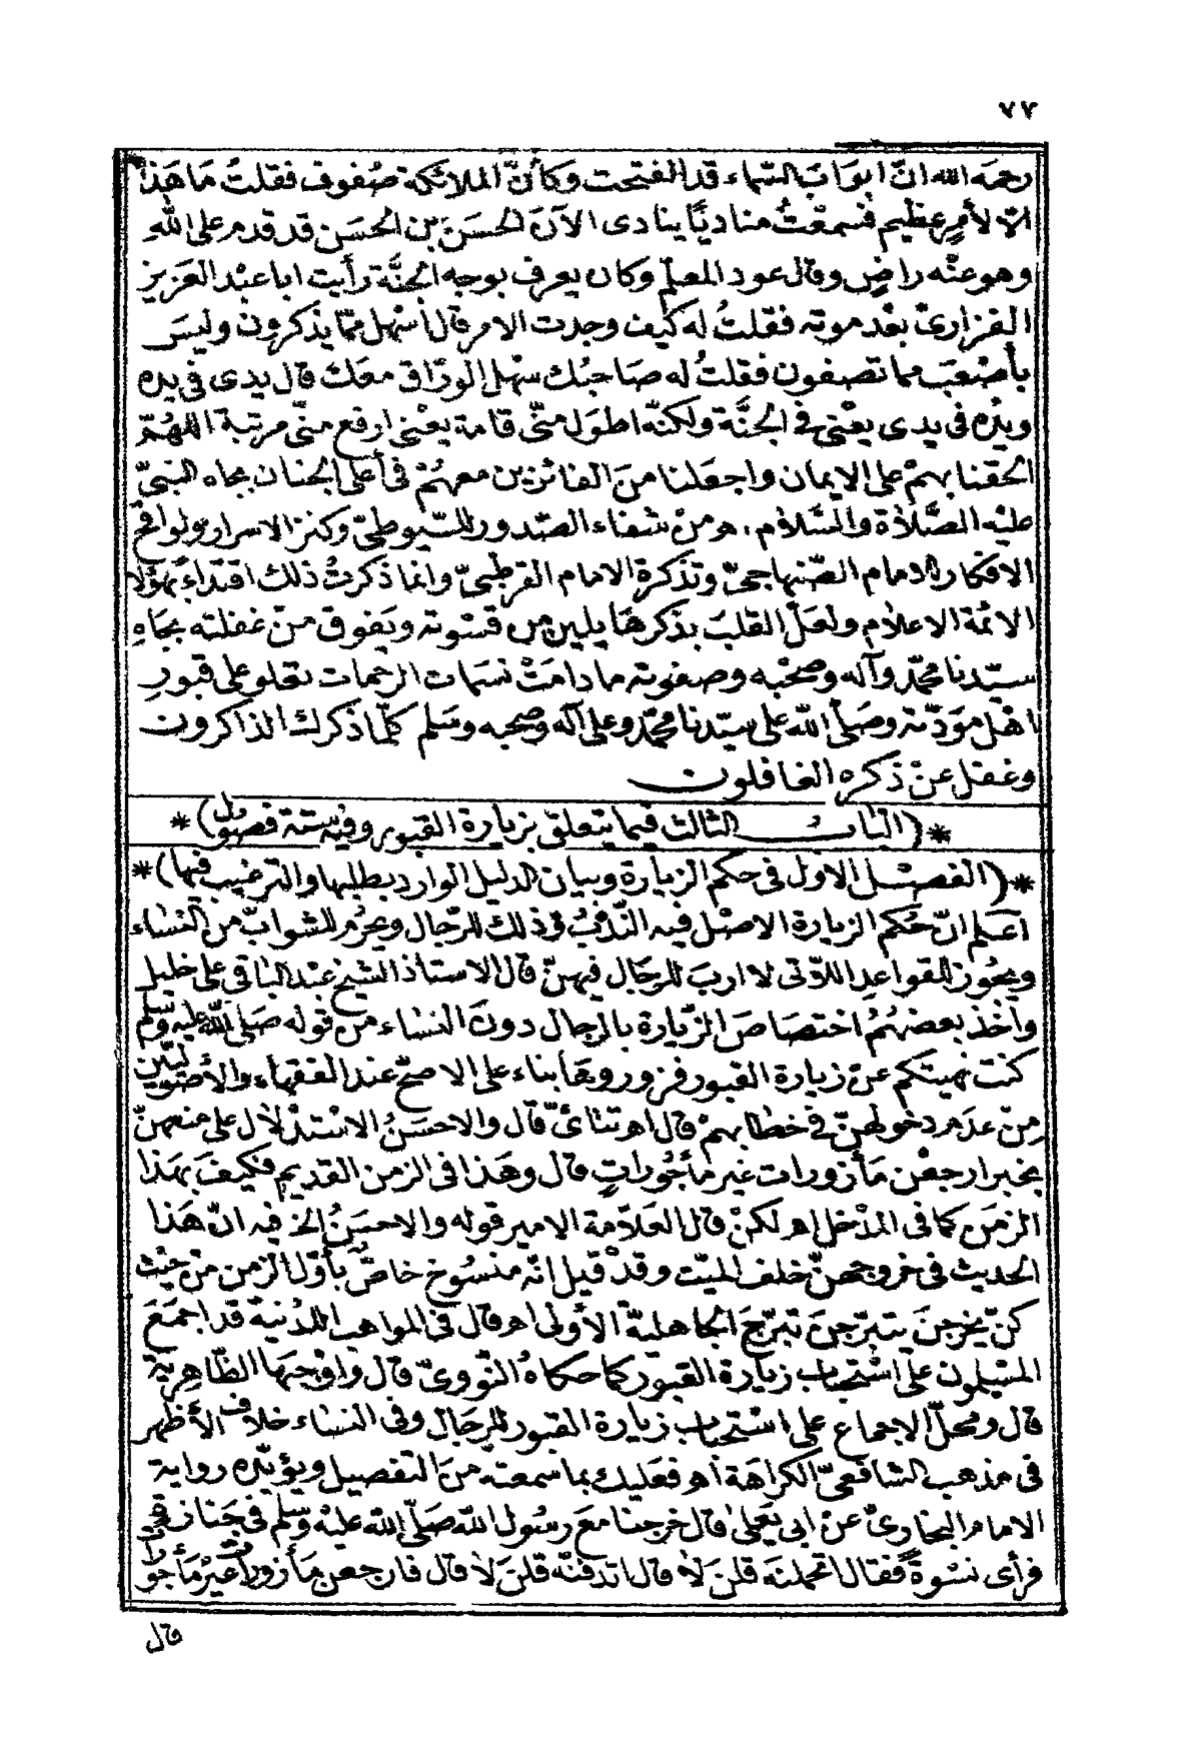 ٧٧
رحمَه الله انّ ابوَابَ السّماء قد الفتحت وكأنّ الملائكة صُفوف فقلتُ مَا هَذا
الّا لأمرٍ عظيم فسمعْتُ مناديًا ينادى الآنَ الحسَنَ بن الحسَن قد قدم على اللهِ
وهو عنْه راضٍ وقال عود المعلم وكان يعرف بوجه الجنَّة رأيت ابا عبْد العَزيز
الفزارىّ بعْد موته فقلتُ له كيف وجدت الامر قال اسْهل ممّا يذكرون وليسَ
بأصْعَبَ مما تصفون فقلتُ له صَاحبُك سهْل الورّاق معَك قال يدى فى يده
ويدُه فى يدى يعْنى فى الجنَّة ولكنّه اطوَل منّى قامة يعْنى ارفع منّى مرتبة اللهُمّ
الحقنا بهمْ على الايمان واجعَلنا منَ الفائزين معهُمْ فى أعلى الجنان بجاه النبىّ
عليْه الصَّلاة والسَّلام، هـ منْ شفاء الصّدور للسّيوطىّ وكنز الاسرار ولواقحْ
الافكار للامام الصّنهاجىّ وتذكرة الامام القرطبىّ وانما ذكرتُ ذلك اقتداءً بهؤلا
الائمّة الاعلام ولعَلّ القلبَ بذكرهَا يلين من قسْوته ويَفوق منْ غفلته بجَاهِ
سيّدنا محمّد وآله وصحْبه وصفوته ما دامَتْ نسَمات الرحمات تعلو على قبورِ
اهْل مَوَدّته وصَلّى اللّه على سيّدنا محمّد وعلى آله وصحبه وسَلم كلّما ذكرك الذاكرون
وغفل عنْ ذكره الغافلون
*(البَابُ الثالث فيما يتعلق بزيارة القبور وفيه ستة فصول)*
*(الفصْل الاوّل فى حكم الزيارة وبيان الدليل الوارد بطلبها والترغيب فيها)*
اعَلم انّ حُكم الزيارة الاصْل فيه النّدْبُ وذلك للرّجال ويحرُم للشوابّ من النسَاء
ويجُوز للقواعد اللاّتى لا اربَ للرجَال فيهنّ قال الاستاذ الشيخ عبْد الباقى على خليل
وأخذ بعضهُمُ اختصَاصَ الزّيارة بالرجال دونَ النسَاء منْ قوله صَلى اللّه عليه وسَلم
كنت نهيتكم عنْ زيارة القبور فزوروهَا بناء على الاصحّ عند الفقهاء والأصُوليّين
مِنْ عدَم دخولهنّ فى خطابهمْ قال اهـ تتائىّ قال والاحسَنُ الاسْتدْلال على منعهنّ
بخبر ارجعْن مَأزورات غير مأجُوراتٍ قال وهَذا فى الزمن القديم فكيفَ بهَذا
الزمَن كما فى المدْخل اهـ لكنْ قال العَلاّمة الامير قوله والاحسَنُ الخ فيه انّ هَذا
الحديث فى خروجهنّ خلف الميّت وقدْ قيل انّه منْسُوخ خاصّ بأوّل الزمن منْ حيْث
كنّ يخرجنَ يتبرّجنَ تبرّجَ الجاهليّة الأولى اهـ قال فى المواهب اللدُنية قد اجمَعَ
المسْلمون على اسْتحباب زيارة القبور كما حكاهُ النّووىّ قال واوْجبَها الظّاهريّة
قال ومحلّ الاجماع على اسْتحباب زيارة القبور للرجَال وفى النسَاء خلاف الأظهر
فى مذهب الشافعىّ الكراهَة اهـ فعَليك بما سمعته منَ التفصيل ويؤيّده رواية
الامام البخارىّ عنْ ابى يَعْلى قال خرجنا معَ رسُول اللّه صَلّى اللّه عليْه وسَلم فى جَنازة
فرأى نسْوةً فقال اتحملنَه قلنَ لَا قال اتدفنّه قلنَ لَا قال فارجعن مَأزوراتٍ غيْر مَأجورَاتٍ
قال